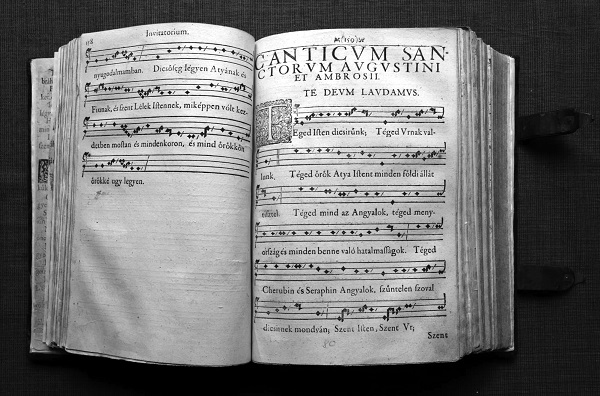 158
Invitatorium.
nyugodalmamban. Dicsőség légyen Atyának és
Fiunak, és szent Lélek Istennek, miképpen vólt kez-
detben mostan és mindenkoron, és mind örökkön
örökké ugy legyen.
(159)
CANTICVM SAN-
CTORVM AVGVSTINI
ET AMBROSII.
TE DEVM LAVDAMVS.
TEged Isten dicsirünk; Téged Vrnak val-
lunk. Téged örök Atya Istent minden földi állát
Téged mind az Angyalok, téged meny-
ország és minden benne való hatalmasságok. Téged
Cherubin és Seraphin Angyalok, szüntelen szoval
dicsirnek mondván; Szent Isten, Szent Vr;
Szent
80